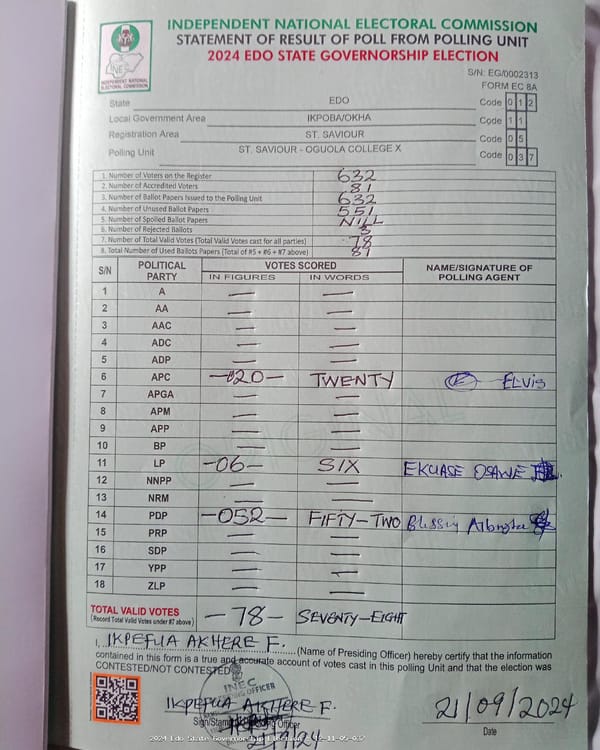 INDEPENDENT NATIONAL ELECTORAL COMMISSION
STATEMENT OF RESULT OF POLL FROM POLLING UNIT
2024 EDO STATE GOVERNORSHIP ELECTION
INEC
INDEPENDENT NATIONAL ELECTORAL COMMISSION
S/N: EG/0002313
FORM EC 8A
State EDO Code 0 1 2
Local Government Area IKPOBA/OKHA Code 1 1
Registration Area ST. SAVIOUR Code 0 5
Polling Unit ST. SAVIOUR - OGUOLA COLLEGE X Code 0 3 7
1. Number of Voters on the Register 632
2. Number of Accredited Voters 81
3. Number of Ballot Papers Issued to the Polling Unit 632
4. Number of Unused Ballot Papers 551
5. Number of Spoiled Ballot Papers NILL
6. Number of Rejected Ballots 3
7. Number of Total Valid Votes (Total Valid Votes cast for all parties) 78
8. Total Number of Used Ballots Papers (Total of #5 + #6 + #7 above) 81
S/N POLITICAL PARTY VOTES SCORED NAME/SIGNATURE OF POLLING AGENT
IN FIGURES IN WORDS
1 A — —
2 AA — —
3 AAC — —
4 ADC — —
5 ADP — —
6 APC -020- TWENTY ELVIS
7 APGA — —
8 APM — —
9 APP — —
10 BP — —
11 LP -06- SIX EKUASE OSAWE
12 NNPP — —
13 NRM — —
14 PDP -052- FIFTY-TWO Blessing
15 PRP — —
16 SDP — —
17 YPP — —
18 ZLP — —
ORIGINAL
TOTAL VALID VOTES -78- SEVENTY-EIGHT
(Record Total Valid Votes under #7 above)
I, IKPEFUA AKHERE F. (Name of Presiding Officer) hereby certify that the information
contained in this form is a true and accurate account of votes cast in this polling Unit and that the election was
CONTESTED/NOT CONTESTED
INEC
PRESIDING OFFICER
IKPEFUA AKHERE F. 21/09/2024
Sign/Stamp Officer Date
2024 Edo State Governorship Election